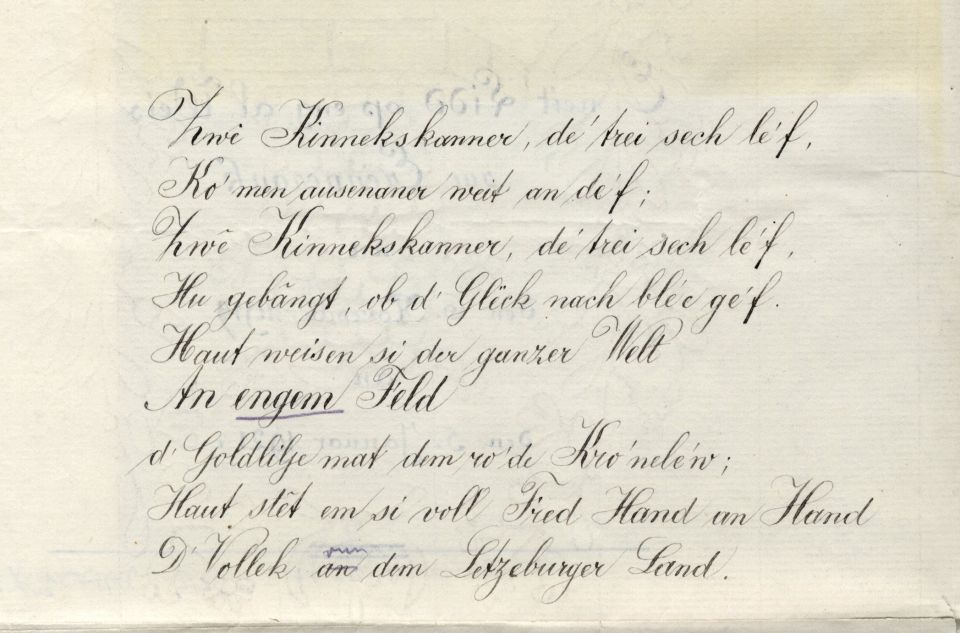 Zwê Kinnekskanner, dé trei sech lé'f,
Ko'men ausenaner weit an dé'f;
Zwê Kinnekskanner, dé trei sech lé'f,
Hu gebängt, ob d' Glëck nach bléc gé'f.
Haut weisen si der ganzer Welt
An engem Feld
d' Goldlilje mat dem ro'de Kro'nelé'w;
Haut stêt em si voll Fred Hand an Hand
D' Vollek an vun dem Letzeburger Land.